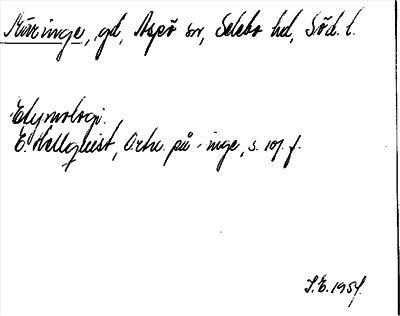 Mälinge, gd, Aspö sn, Selebo hd, Söd. l.
Etymologi.
E. Hellquist, Ortn. på -inge, s. 107. f.
I.E. 1954.